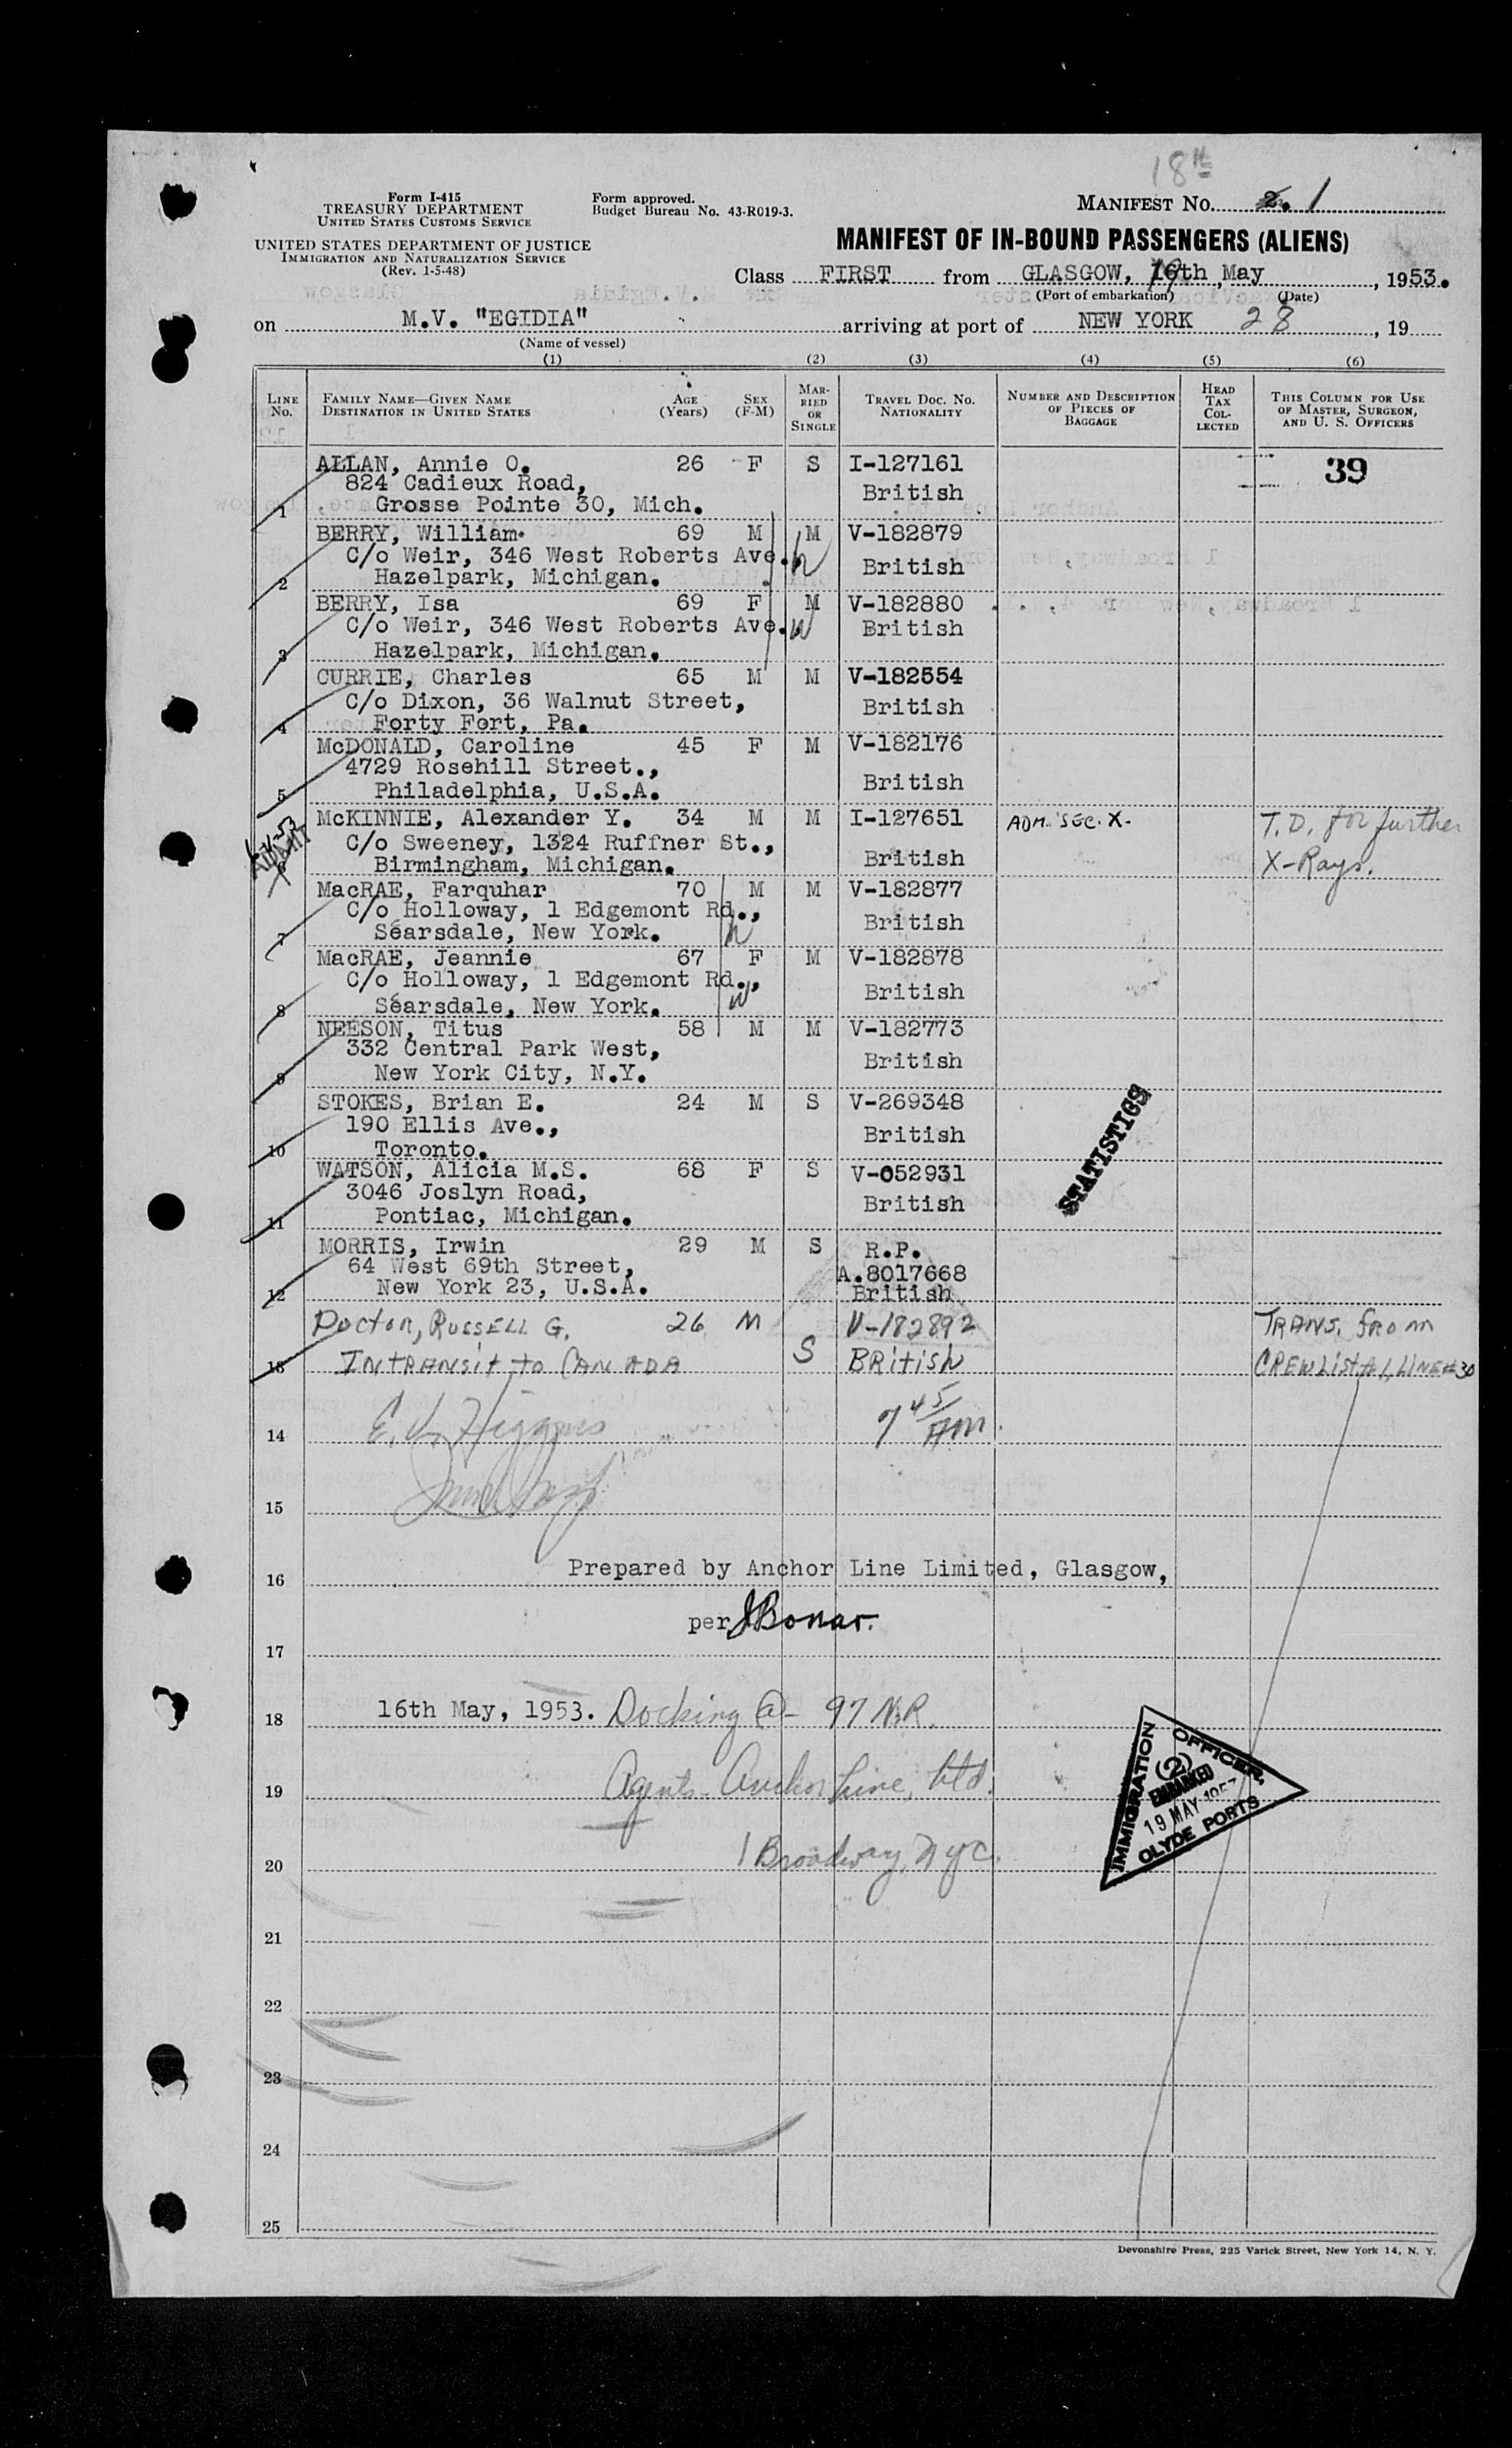 18th
Form I-415
TREASURY DEPARTMENT
UNITED STATES CUSTOMS SERVICE
UNITED STATES DEPARTMENT OF JUSTICE
IMMIGRATION AND NATURALIZATION SERVICE
(Rev. 1-5-48)
Form approved.
Budget Bureau No. 43-R019-3.
MANIFEST No. 2. 1
MANIFEST OF IN-BOUND PASSENGERS (ALIENS)
Class FIRST from GLASGOW, 16th 19 May, 1953.
(Port of embarkation) (Date)
on M.V. "EGIDIA" arriving at port of NEW YORK 28, 19
(Name of vessel)
(1) (2) (3) (4) (5) (6)
LINE No. FAMILY NAME—GIVEN NAME DESTINATION IN UNITED STATES AGE (Years) SEX (F-M) MARRIED OR SINGLE TRAVEL DOC. NO. NATIONALITY NUMBER AND DESCRIPTION OF PIECES OF BAGGAGE HEAD TAX COLLECTED THIS COLUMN FOR USE OF MASTER, SURGEON, AND U. S. OFFICERS
ALLAN, Annie O. 26 F S I-127161 39
824 Cadieux Road, British
1 Grosse Pointe 30, Mich.
BERRY, William. 69 M M V-182879
C/o Weir, 346 West Roberts Ave. British
2 Hazelpark, Michigan.
BERRY, Isa 69 F M V-182880
C/o Weir, 346 West Roberts Ave. W British
3 Hazelpark, Michigan.
CURRIE, Charles 65 M M V-182554
C/o Dixon, 36 Walnut Street, British
4 Forty Fort, Pa.
McDONALD, Caroline 45 F M V-182176
4729 Rosehill Street., British
5 Philadelphia, U.S.A.
McKINNIE, Alexander Y. 34 M M I-127651 ADM. SEC. X. T.D. for further
C/o Sweeney, 1324 Ruffner St., British X-Rays.
6 Birmingham, Michigan.
MacRAE, Farquhar 70 M M V-182877
C/o Holloway, 1 Edgemont Rd., British
7 Searsdale, New York. h
MacRAE, Jeannie 67 F M V-182878
C/o Holloway, 1 Edgemont Rd., British
8 Searsdale, New York. w
NEESON, Titus 58 M M V-182773
332 Central Park West, British
9 New York City, N.Y.
STOKES, Brian E. 24 M S V-269348
190 Ellis Ave., British
10 Toronto.
STATISTICS
WATSON, Alicia M.S. 68 F S V-052931
3046 Joslyn Road, British
11 Pontiac, Michigan.
MORRIS, Irwin 29 M S R.P.
64 West 69th Street, A.8017668
12 New York 23, U.S.A. British
Doctor, RUSSELL G. 26 M V-182892 TRANS. from
13 INTRANSIT to CANADA S BRITISH CREWLIST #1, LINE #30
14 E. V. Higgins 7 45/AM.
15
Prepared by Anchor Line Limited, Glasgow,
16
per JBonar.
17
16th May, 1953. Docking @ - 97 N.R.
18
Agents. Anchor Line, Ltd.
19
1 Broadway, NYC.
20
IMMIGRATION OFFICER,
(2)
EMBARKED
19 MAY 1953
CLYDE PORTS
21
22
23
24
25
Devonshire Press, 225 Varick Street, New York 14, N. Y.